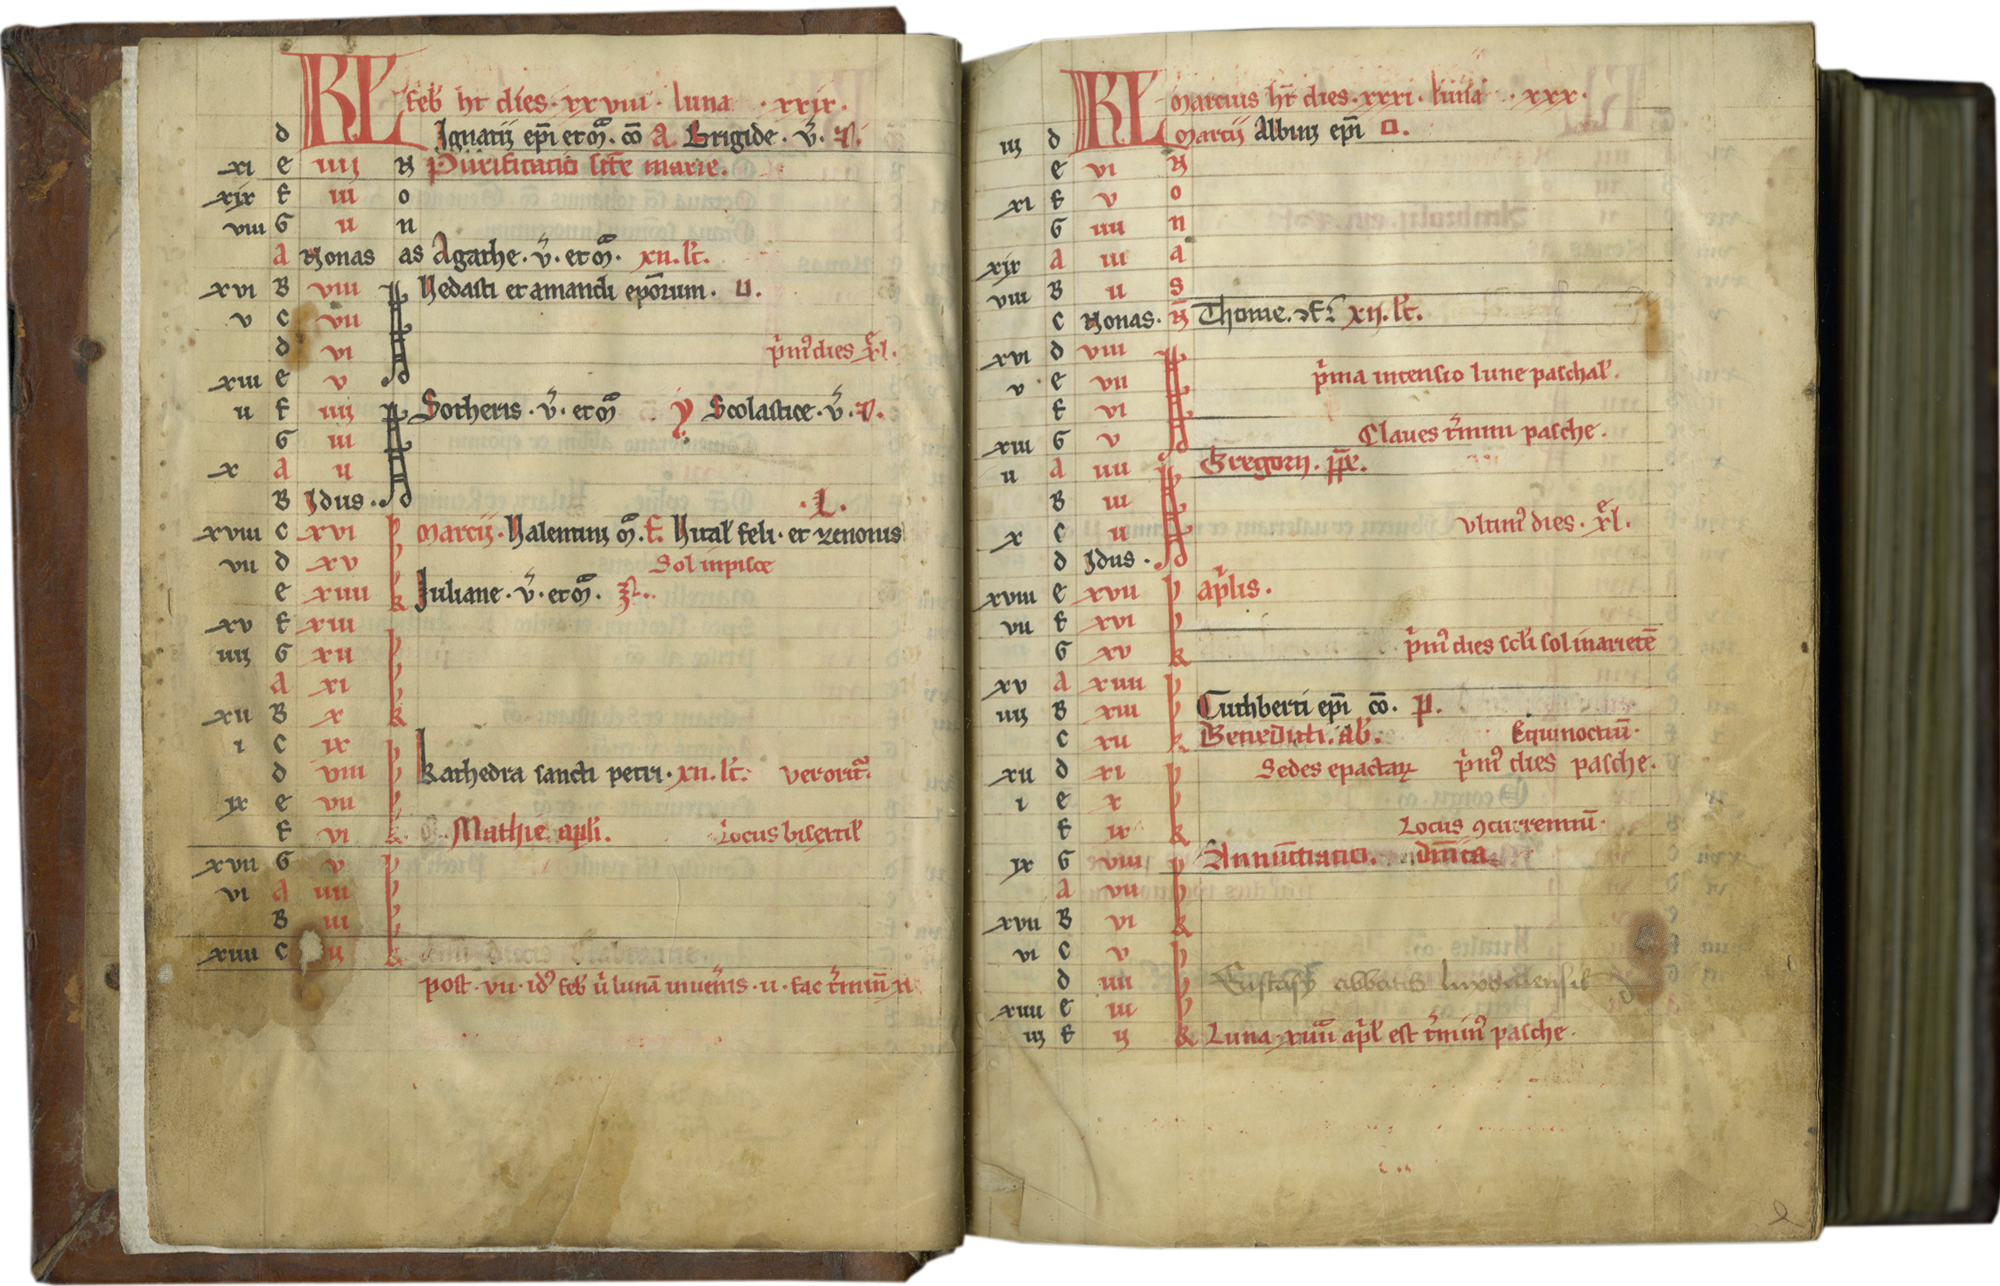 KL feb hr dies · xxviii · luna · xxix ·
d Ignatij epi et m̄ · co A Brigide · v̄ ·
xi e iiij N Purificatio scē marie .
xix f iii o
viii G ii n
A Nonas as Agathe · v̄ · et m̄ · xii · lc̄ .
xvi B viii Vedasti et amandi eporum · U .
v c vii
d vi pm' dies xl .
xiii e v
ii f iiij Sotheris · v̄ · et m̄ Scolastice · v̄ ·
G iii
x A ii
B Idus · L .
xviii c xvi marcij · Valentini m̄ · f Vital' feli · et zenonis
vii d xv Sol in pisce
e xiiii k Juliane · v̄ · et m̄ ·
xv f xiii
iiij G xii
A xi
xii B x k
i c ix
d viii kathedra sancti petri · xii · lc̄ : ver orit~
ix e vii
f vi k Mathie apli . Locus bisextil'
xvii G v
vi A iiii
B iii
xiiii c ii k
post · vii · id' feb u lunā inven̄is · ii · fac t̄minū
KL marcius hr dies · xxxi · luna · xxx ·
iij d marcij Albini epi □ .
e vi N
xi f v o
G iiii n
xix A iii a
viii B ii s
c Nonas · N Thome · xij · lc̄ .
xvi d viii
v e vii pma incensio lune paschal' .
f vi
xiii G v Claues t̄mini pasche .
ii A iiii Gregorij · ppe .
B iii
x c ii vltim' dies · xl .
d Idus ·
xviii e xvii aplis .
vii f xvi
G xv k pm' dies scli sol in arietē
xv A xiiii
iiij B xiii Cuthberti epi co · P .
c xii k Benedicti . ab' . Equinoctiū ·
xii d xi Sedes epactarum pm' dies pasche ·
i e x
f ix k Locus ꝯcurrentiū ·
ix G viii Annūtiatio . dn̄ica
A vii
xvii B vi k
vi c v
d iiii Eustasij abbatis luxoviensis
xiiii e iii
iij f ij k Luna · xiiii apl' est t̄min' pasche ·